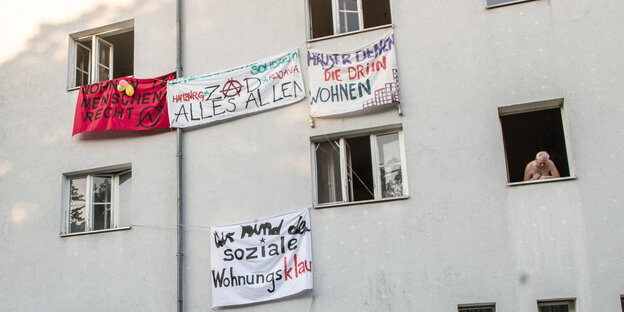 WOHNEN
MENSCHEN
RECHT
SOLIDARITÄT
AFOJAVA
HAMBURG ZAD
ALLES ALLEN
HÄUSER DENEN
DIE DRIN
WOHNEN
Wir sind die
soziale
Wohnungsklau